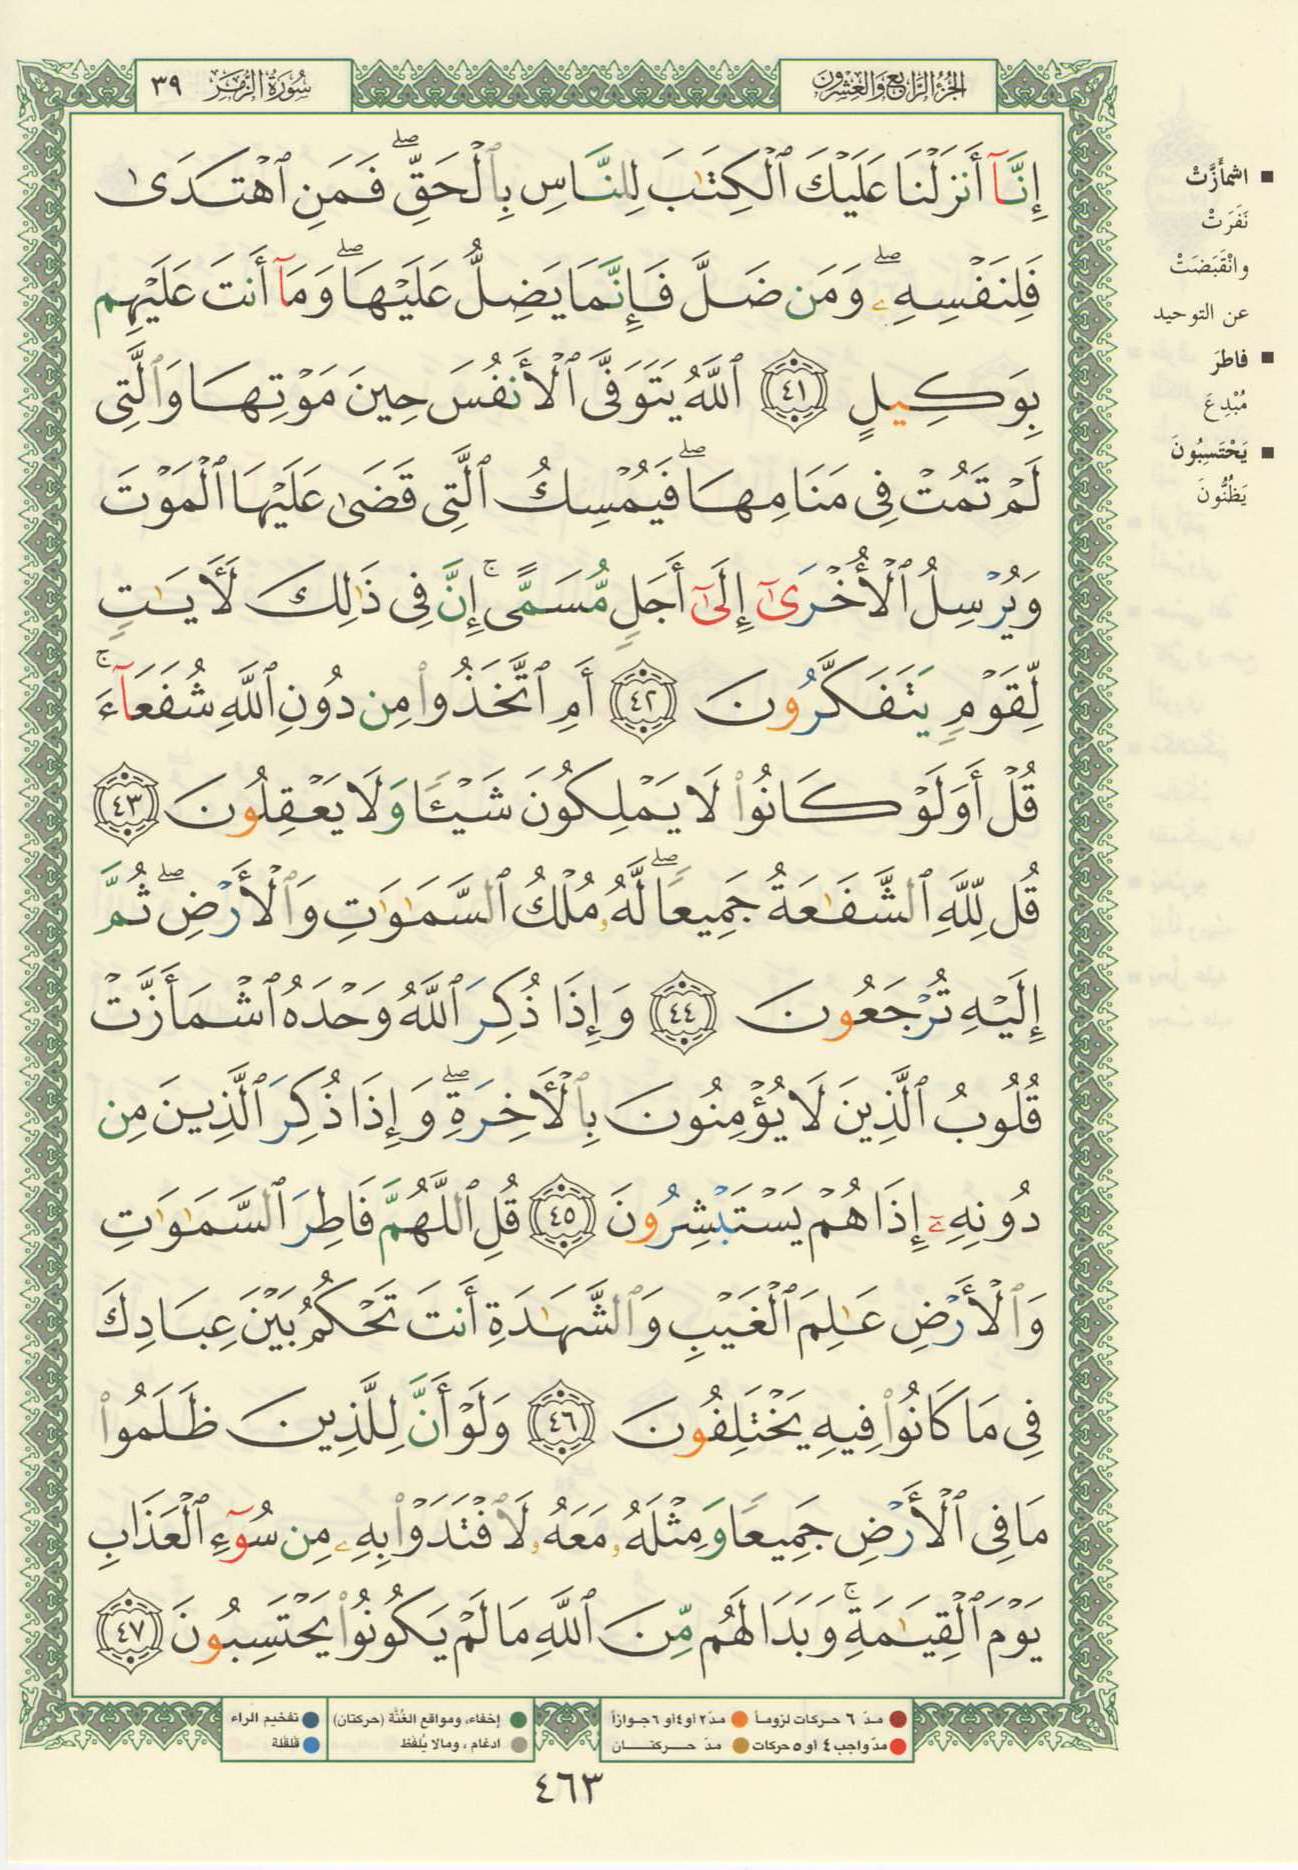 سُورَةُ الزُّمَرِ ٣٩
الجُزْءُ الرَّابِعُ وَالعِشْرُونَ
إِنَّآ أَنزَلْنَا عَلَيْكَ ٱلْكِتَٰبَ لِلنَّاسِ بِٱلْحَقِّۖ فَمَنِ ٱهْتَدَىٰ
فَلِنَفْسِهِۦۖ وَمَن ضَلَّ فَإِنَّمَا يَضِلُّ عَلَيْهَاۖ وَمَآ أَنتَ عَلَيْهِم
بِوَكِيلٍ ٤١ ٱللَّهُ يَتَوَفَّى ٱلْأَنفُسَ حِينَ مَوْتِهَا وَٱلَّتِى
لَمْ تَمُتْ فِى مَنَامِهَاۖ فَيُمْسِكُ ٱلَّتِى قَضَىٰ عَلَيْهَا ٱلْمَوْتَ
وَيُرْسِلُ ٱلْأُخْرَىٰٓ إِلَىٰٓ أَجَلٍ مُّسَمًّىۚ إِنَّ فِى ذَٰلِكَ لَءَايَٰتٍ
لِّقَوْمٍ يَتَفَكَّرُونَ ٤٢ أَمِ ٱتَّخَذُوا۟ مِن دُونِ ٱللَّهِ شُفَعَآءَۚ
قُلْ أَوَلَوْ كَانُوا۟ لَا يَمْلِكُونَ شَيْـًٔا وَلَا يَعْقِلُونَ ٤٣
قُل لِّلَّهِ ٱلشَّفَٰعَةُ جَمِيعًاۖ لَّهُۥ مُلْكُ ٱلسَّمَٰوَٰتِ وَٱلْأَرْضِۖ ثُمَّ
إِلَيْهِ تُرْجَعُونَ ٤٤ وَإِذَا ذُكِرَ ٱللَّهُ وَحْدَهُ ٱشْمَأَزَّتْ
قُلُوبُ ٱلَّذِينَ لَا يُؤْمِنُونَ بِٱلْءَاخِرَةِۖ وَإِذَا ذُكِرَ ٱلَّذِينَ مِن
دُونِهِۦٓ إِذَا هُمْ يَسْتَبْشِرُونَ ٤٥ قُلِ ٱللَّهُمَّ فَاطِرَ ٱلسَّمَٰوَٰتِ
وَٱلْأَرْضِ عَٰلِمَ ٱلْغَيْبِ وَٱلشَّهَٰدَةِ أَنتَ تَحْكُمُ بَيْنَ عِبَادِكَ
فِى مَا كَانُوا۟ فِيهِ يَخْتَلِفُونَ ٤٦ وَلَوْ أَنَّ لِلَّذِينَ ظَلَمُوا۟
مَا فِى ٱلْأَرْضِ جَمِيعًا وَمِثْلَهُۥ مَعَهُۥ لَٱفْتَدَوْا۟ بِهِۦ مِن سُوٓءِ ٱلْعَذَابِ
يَوْمَ ٱلْقِيَٰمَةِۚ وَبَدَا لَهُم مِّنَ ٱللَّهِ مَا لَمْ يَكُونُوا۟ يَحْتَسِبُونَ ٤٧
■ اشْمَأَزَّتْ
نَفَرَتْ
وانْقَبَضَتْ
عن التوحيد
■ فاطِرَ
مُبْدِعَ
■ يَحْتَسِبُونَ
يَظُنُّونَ
مدّ ٦ حركات لزوماً
مدّ ٢ أو ٤ أو ٦ جوازاً
إخفاء، ومواقع الغُنَّة (حركتان)
تفخيم الراء
مدّ واجب ٤ أو ٥ حركات
مدّ حركتان
ادغام، ومالا يُلفَظ
قلقلة
٤٦٣